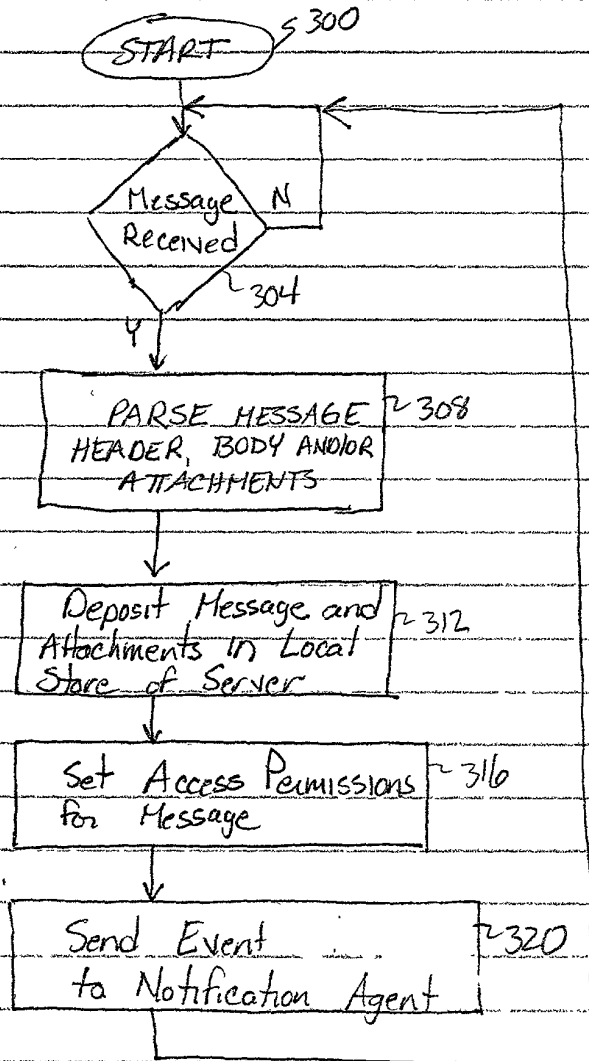 START
300
Message
Received
N
304
Y
PARSE MESSAGE
HEADER, BODY AND/OR
ATTACHMENTS
308
Deposit Message and
Attachments in Local
Store of Server
312
Set Access Permissions
for Message
316
Send Event
to Notification Agent
320